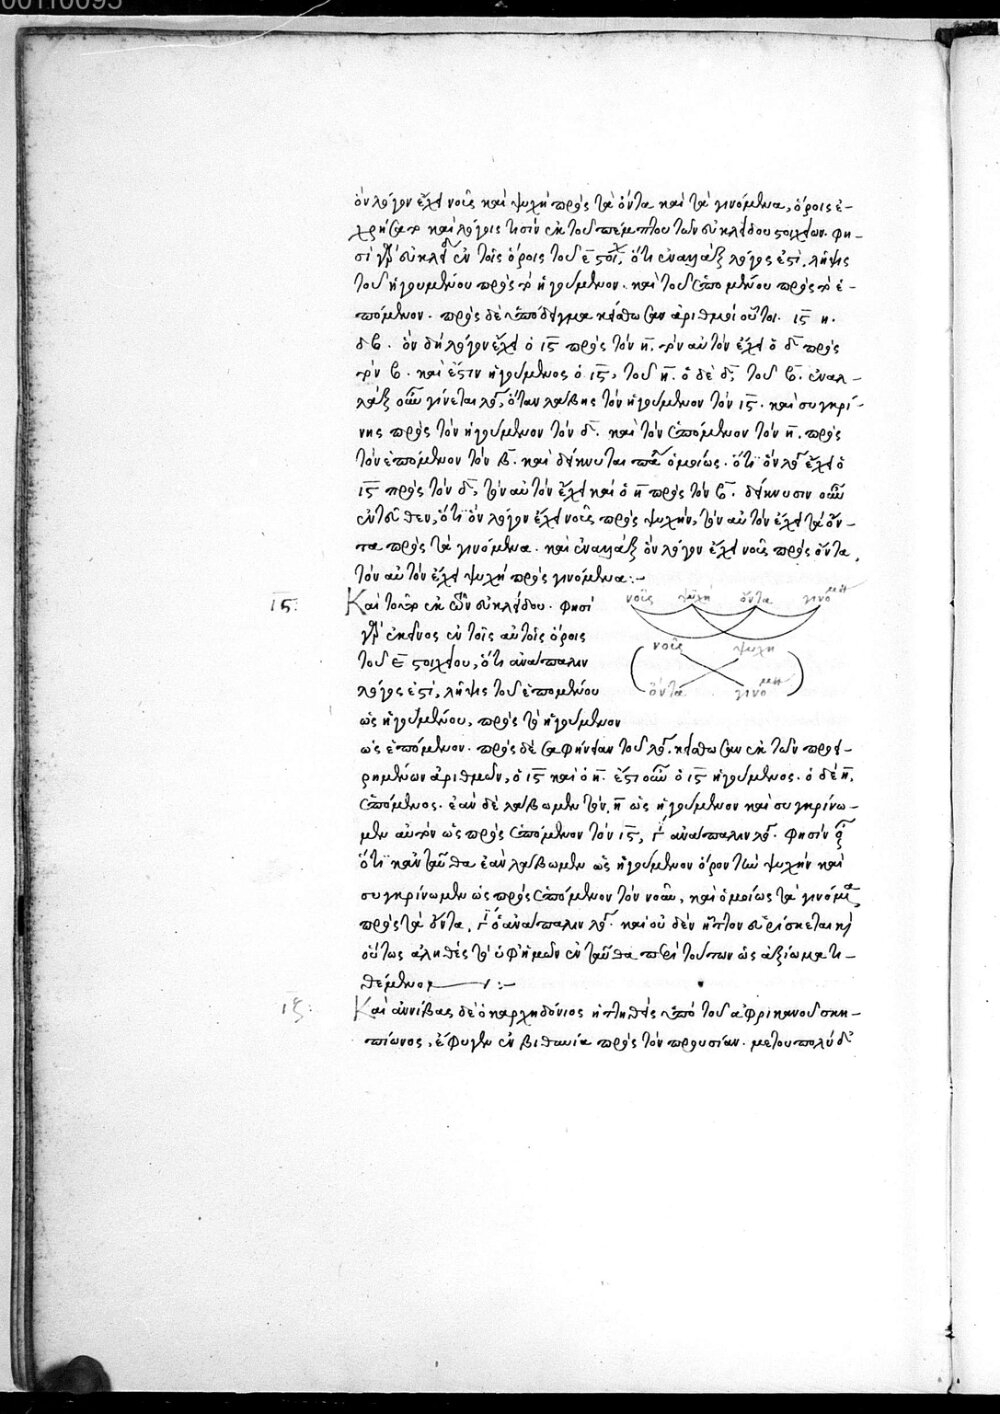 ὃν λόγον ἔχει νοῦς καὶ ψυχὴ πρὸς τὰ ὄντα καὶ τὰ γινόμενα, ὅροις ἐ-
χρήσατο καὶ λόγοις τισὶν ἐκ τοῦ πέμπτου τῶν εὐκλείδου στοιχείων. φη-
σὶ γὰρ εὐκλεί ἐν τοῖς ὅροις τοῦ ε στοιχ, ὅτι ἐναλλὰξ λόγος ἐστὶ, λῆψις
τοῦ ἡγουμένου πρὸς τὸ ἡγούμενον. καὶ τοῦ ἑπομένου πρὸς τὸ ἑ-
πόμενον. πρὸς δὲ ὑπόδειγμα κείσθωσαν ἀριθμοὶ οὗτοι. ις η.
δ β. ὃν δὴ λόγον ἔχει ὁ ις πρὸς τὸν η, τὸν αὐτὸν ἔχει ὁ δ πρὸς
τὸν β. καὶ ἔστιν ἡγούμενος ὁ ις, τοῦ η. ὁ δὲ δ, τοῦ β. ἐναλ-
λὰξ οὖν γίνεται λό, ὅταν λάβῃς τὸν ἡγούμενον τὸν ις. καὶ συγκρί-
νῃς πρὸς τὸν ἡγούμενον τὸν δ. καὶ τὸν ἑπόμενον τὸν η. πρὸς
τὸν ἑπόμενον τὸν β. καὶ δείκνυται πάν ὁμοίως. ὅτι ὃν λό ἔχει ὁ
ις πρὸς τὸν δ, τὸν αὐτὸν ἔχει καὶ ὁ η πρὸς τὸν β. δείκνυσιν οὖν
ἐντεῦθεν, ὅτι ὃν λόγον ἔχει νοῦς πρὸς ψυχὴν, τὸν αὐτὸν ἔχει τὰ ὄν-
τα πρὸς τὰ γινόμενα. καὶ ἐναλλὰξ ὃν λόγον ἔχει νοῦς πρὸς ὄντα,
τὸν αὐτὸν ἔχει ψυχὴ πρὸς γινόμενα:-
ις: Καὶ τοῦτο ἐκ τῶν εὐκλείδου. φησὶ
γὰρ ἐκεῖνος ἐν τοῖς αὐτοῖς ὅροις
τοῦ ε στοιχείου, ὅτι ἀνάπαλιν
λόγος ἐστὶ, λῆψις τοῦ ἑπομένου
ὡς ἡγουμένου, πρὸς τὸ ἡγούμενον
νοῦς ψυχὴ ὄντα γινόμεν
νοῦς ψυχὴ
ὄντα γινόμεν
ὡς ἑπόμενον. πρὸς δὲ σαφήνειαν τοῦ λό. κείσθωσαν ἐκ τῶν προει-
ρημένων ἀριθμῶν, ὁ ις καὶ ὁ η. ἔστι οὖν ὁ ις ἡγούμενος. ὁ δὲ η,
ἑπόμενος. ἐὰν δὲ λάβωμεν τὸν η ὡς ἡγούμενον καὶ συγκρίνω-
μεν αὐτὸν ὡς πρὸς ἑπόμενον τὸν ις, ἀνάπαλιν λό. φησὶν
ὅτι κἀνταῦθα ἐὰν λάβωμεν ὡς ἡγούμενον ὅρον τὴν ψυχὴν καὶ
συγκρίνωμεν ὡς πρὸς ἑπόμενον τὸν νοῦν, καὶ ὁμοίως τὰ γινόμενα
πρὸς τὰ ὄντα, ὁ ἀνάπαλιν λό. καὶ οὐδὲν ἧττον εὑρίσκεται καὶ
οὕτως ἀληθὲς τὸ ὑφ' ἡμῶν ἐνταῦθα περὶ τούτων ὡς ἀξίωμα τι-
θέμενον:-
ιζ: Καὶ ἀννίβας δὲ ὁ καρχηδόνιος ἡττηθεὶς ὑπὸ τοῦ ἀφρικανοῦ σκη-
πίωνος, ἔφυγεν ἐν βιθυνία πρὸς τὸν προυσίαν. μετ' οὐ πολὺ δὲ